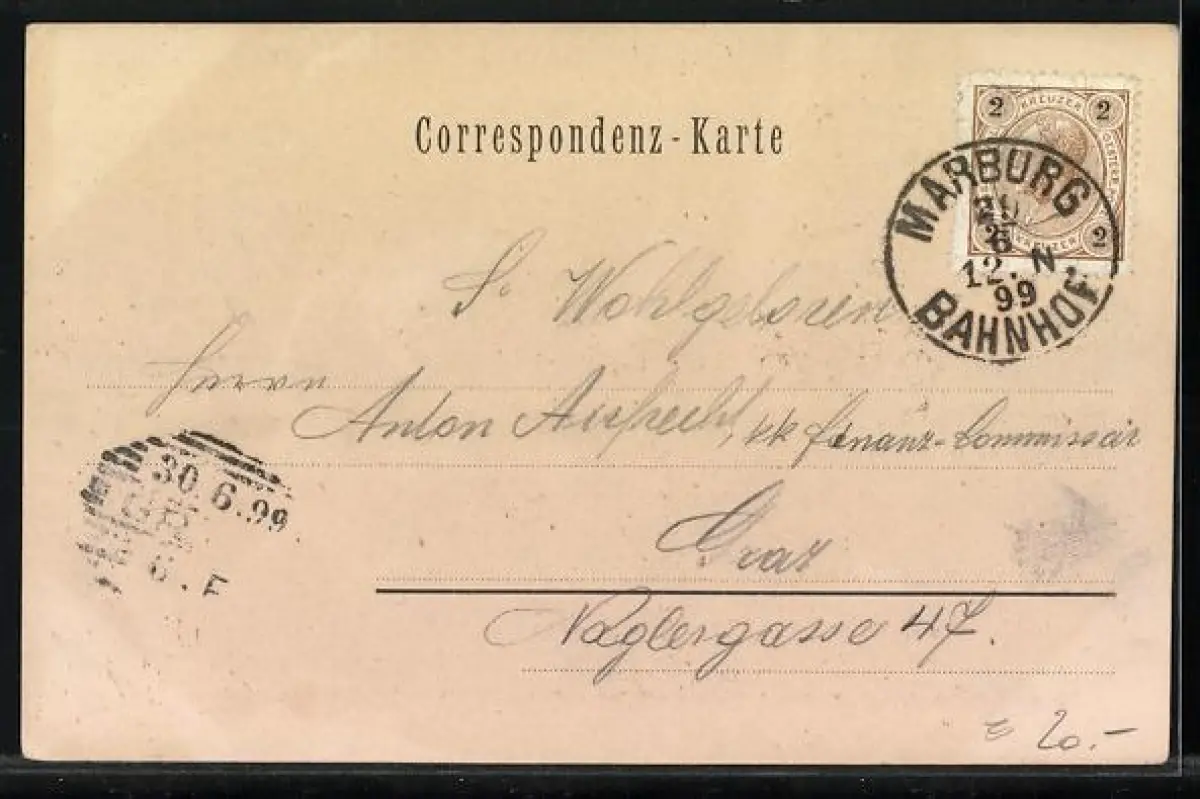 Correspondenz-Karte
2 KREUZER 2
KREUZER 2
MARBURG
29
6
12. N.
99
BAHNHOF
S. Wohlgeboren
Herrn
Anton Aufrecht, kk Finanz-Commissär
30.6.99
6. F
Graz
Naglergasse 47.
20.-